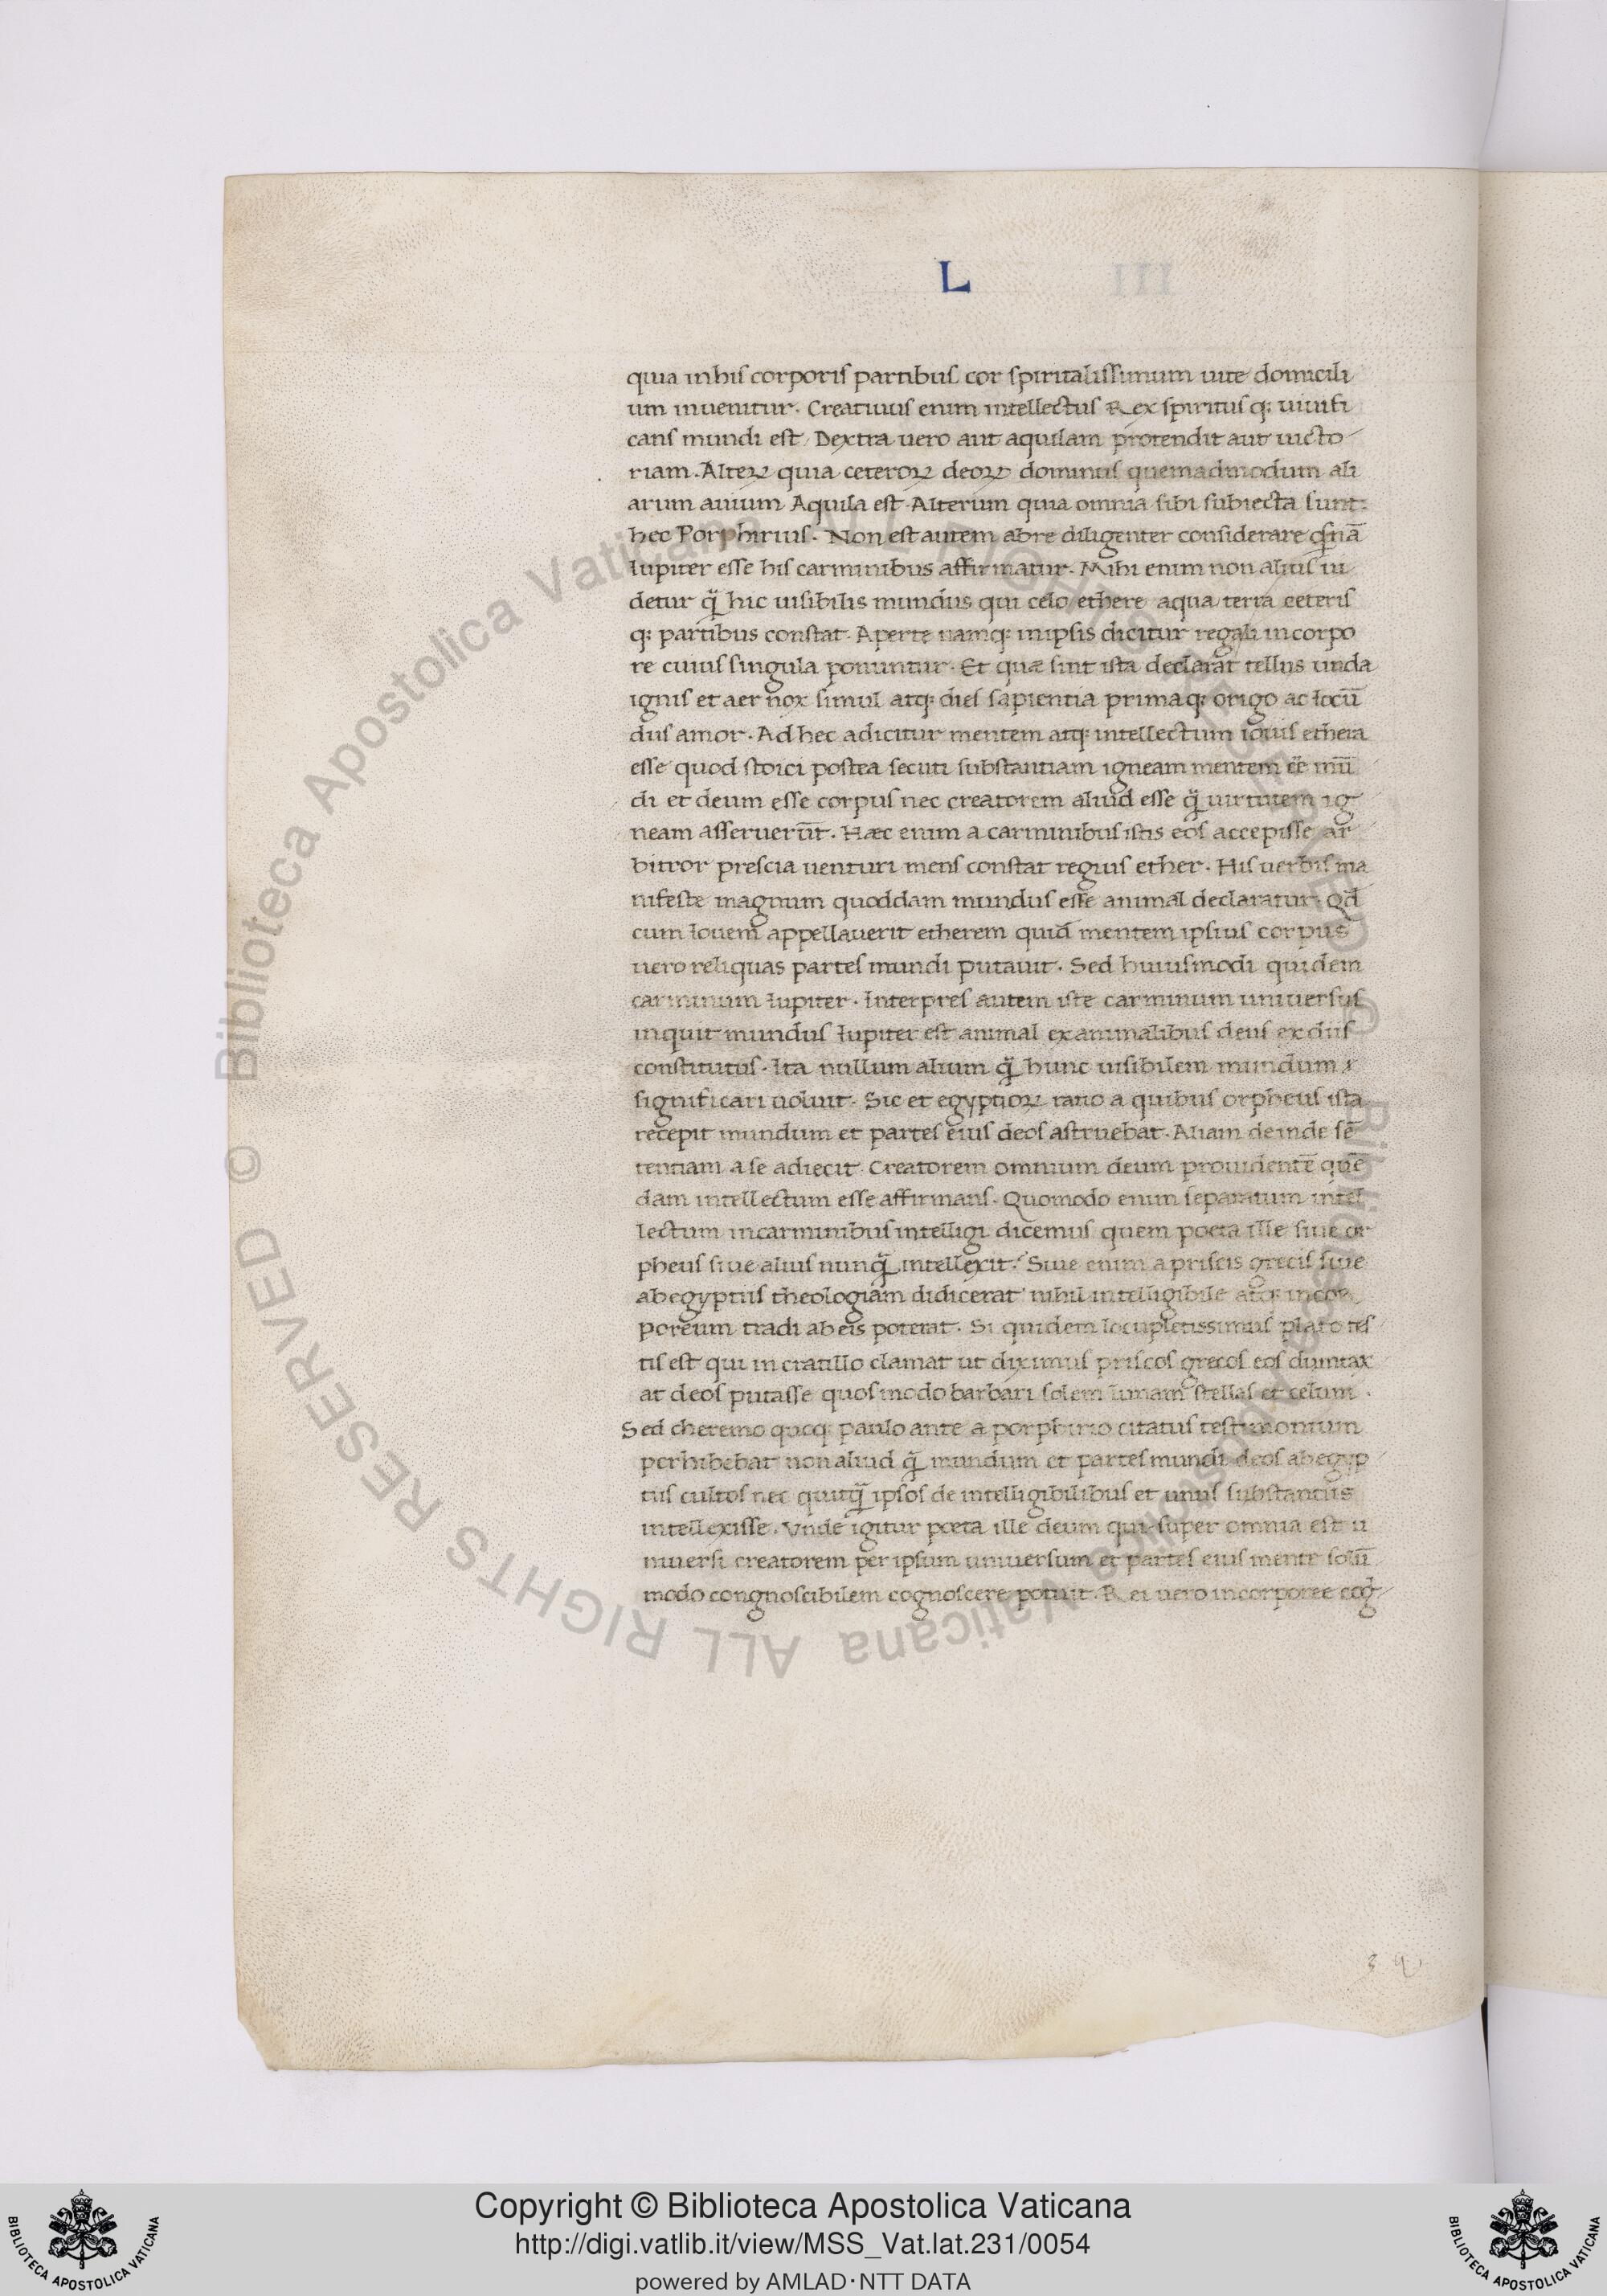 L
quia in his corporis partibus cor spiritalissimum uite domicili
um inuenitur. Creatiuus enim intellectus Rex spiritus q; uiuifi
cans mundi est. Dextra uero aut aquilam protendit aut uicto
riam. Alterꝝ quia ceteroꝝ deoꝝ dominus quemadmodum ali
arum auium Aquila est. Alterum quia omnia sibi subiecta sunt.
hec Porphirius. Non est autem ab re diligenter considerare
Iupiter esse his carminibus affirmatur. Mihi enim non alius ui
detur q̃ hic uisibilis mundus qui celo ethere aqua terra ceteris
q; partibus constat. Aperte namq; in ipsis dicitur regali in corpo
re cuius singula ponuntur. Et quæ sint ista declarat tellus unda
ignis et aer nox simul atq; dies sapientia prima q; origo ac Iocū
dus amor. Ad hec adicitur mentem atq; intellectum iouis etherā
esse quod stoici postea secuti substantiam igneam mentem eē mū
di et deum esse corpus nec creatorem aliud esse q̃ uirtutem ig
neam asseruerūt. Hæc enim a carminibus istis eos accepisse ar
bitror prescia uenturi mens constat regius ether. His uerbis ma
nifeste magnum quoddam mundus esse animal declaratur. Qd̄
cum Iouem appellauerit etherem quid mentem ipsius corpus
uero reliquas partes mundi putauit. Sed huiusmodi quidem
carminum Iupiter. Interpres autem iste carminum uniuersus
inquit mundus Iupiter est animal ex animalibus deus ex diis
constitutus. Ita nullum alium q̃ hunc uisibilem mundum
significari uoluit. Sic et egyptioꝝ ratio a quibus orpheus ista
recepit mundum et partes eius deos astruebat. Aliam deinde sē
tentiam a se adiecit. Creatorem omnium deum prouidentē quē
dam intellectum esse affirmans. Quomodo enim separatum intel
lectum in carminibus intelligi dicemus quem poeta ille siue or
pheus siue alius nunq̃ intellexit. Siue enim a priscis grecis siue
ab egyptiis theologiam didicerat nihil intelligibile atq; incor
poreum tradi ab eis poterat. Si quidem locupletissimus plato tes
tis est qui in cratillo clamat ut diximus priscos grecos eos dumtax
at deos putasse quos modo barbari solem lunam stellas et celum.
Sed cheremo quoq; paulo ante a porphirio citatus testimonium
perhibebat non aliud q̃ mundum et partes mundi deos ab egyp
tiis cultos nec quitq̃ ipsos de intelligibilibus et unis substantiis
intellexisse. Vnde igitur poeta ille deum qui super omnia est u
niuersi creatorem per ipsum uniuersum et partes eius mente solū
modo congnoscibilem cognoscere potuit. Rei uero incorporee cog̃
© Biblioteca Apostolica Vaticana ALL RIGHTS RESERVED
© Biblioteca Apostolica Vaticana ALL RIGHTS RESERVED
BIBLIOTECA APOSTOLICA VATICANA
Copyright © Biblioteca Apostolica Vaticana
http://digi.vatlib.it/view/MSS_Vat.lat.231/0054
powered by AMLAD·NTT DATA
BIBLIOTECA APOSTOLICA VATICANA